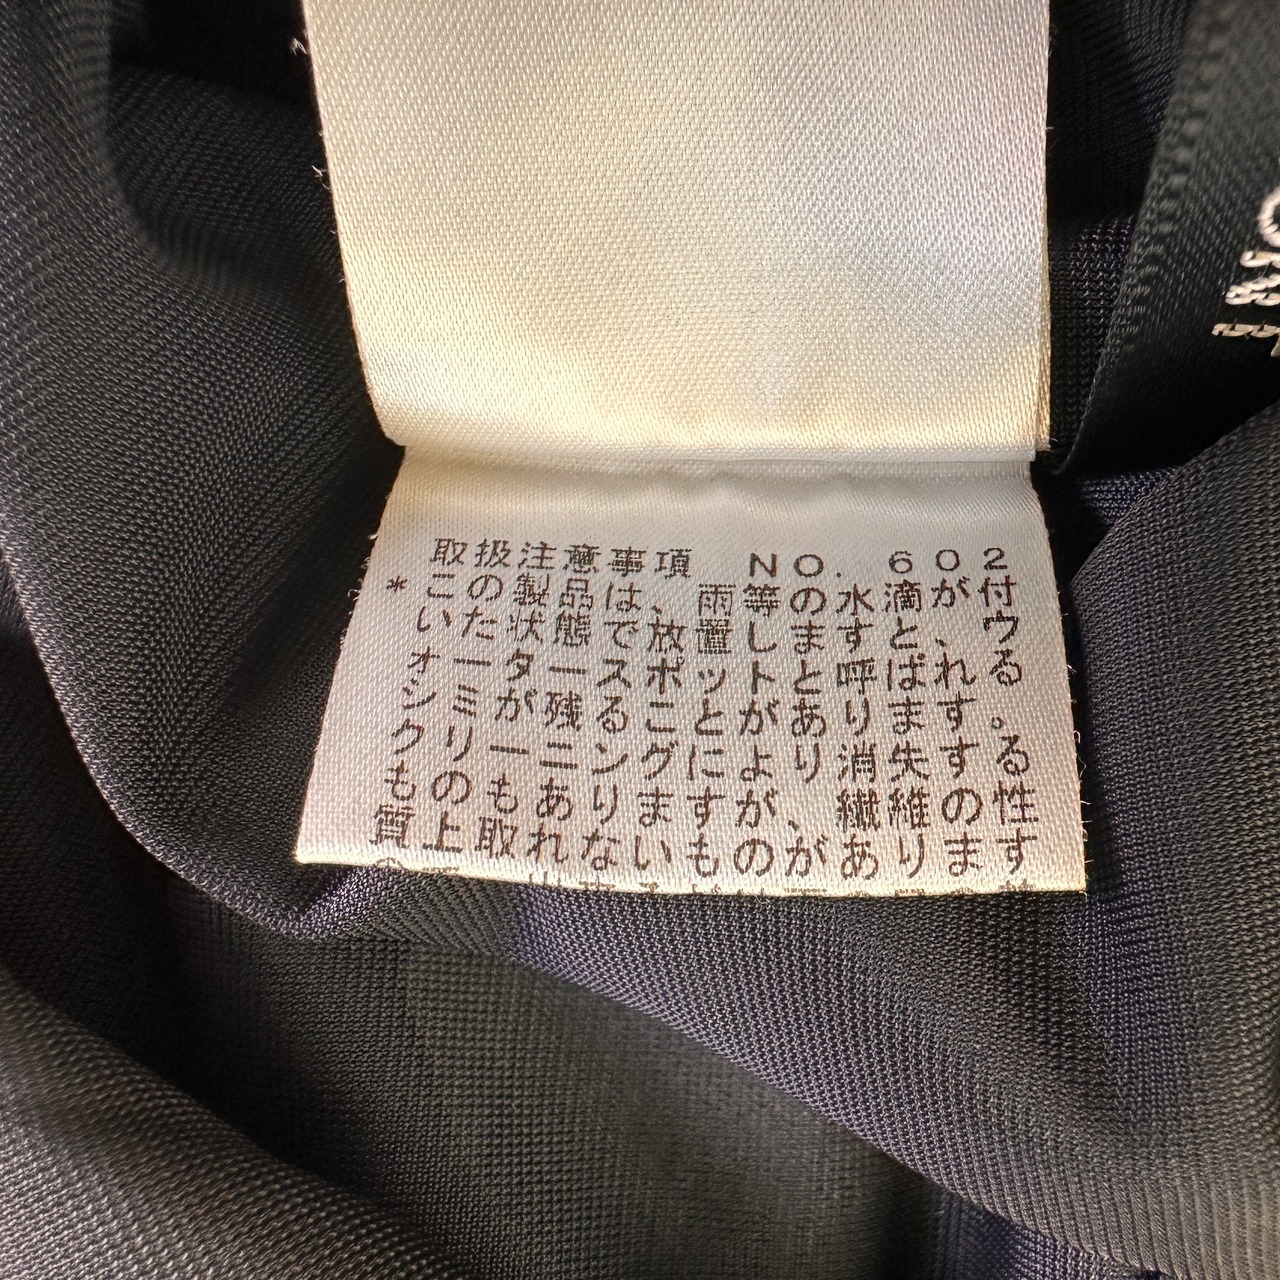 取扱注意事項 NO. 602
*この製品は、雨等の水滴が付
いた状態で放置しますと、ウ
ォータースポットと呼ばれる
シミが残ることがあります。
クリーニングにより消失する
ものもありますが、繊維の性
質上取れないものがあります